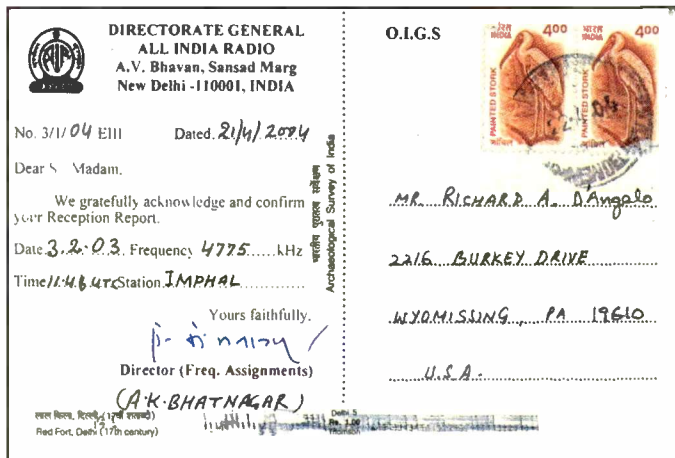 DIRECTORATE GENERAL
ALL INDIA RADIO
A.V. Bhavan, Sansad Marg
New Delhi -110001, INDIA
No. 3/1/04 EIII Dated. 21/4/2004
Dear S Madam,
We gratefully acknowledge and confirm
your Reception Report.
Date 3.2.03. Frequency 4775 kHz
Time 11.46 UTC Station IMPHAL
Yours faithfully,
Director (Freq. Assignments)
(A.K. BHATNAGAR)
लाल किला, दिल्ली (17वीं शताब्दी)
Red Fort, Delhi (17th century)
भारतीय पुरातत्व सर्वेक्षण
Archaeological Survey of India
Delhi 5
Rs. 3.00
Thomson
O.I.G.S
भारत INDIA 400
PAINTED STORK
भारत INDIA 400
PAINTED STORK
MR. RICHARD A. D'Angelo
2216 BURKEY DRIVE
WYOMISSING, PA 19610
U.S.A.